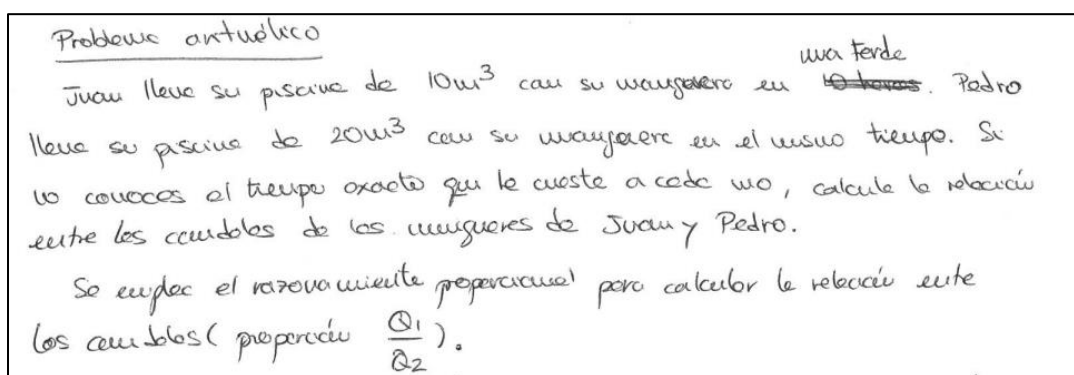 Problema aritmético
una tarde
Juan llena su piscina de 10m³ con su manguera en 10 horas. Pedro
llena su piscina de 20m³ con su manguera en el mismo tiempo. Si
no conoces el tiempo exacto que le cuesta a cada uno, calcula la relación
entre los caudales de las mangueras de Juan y Pedro.
Se emplea el razonamiento proporcional para calcular la relación entre
los caudales (proporción Q₁/Q₂).